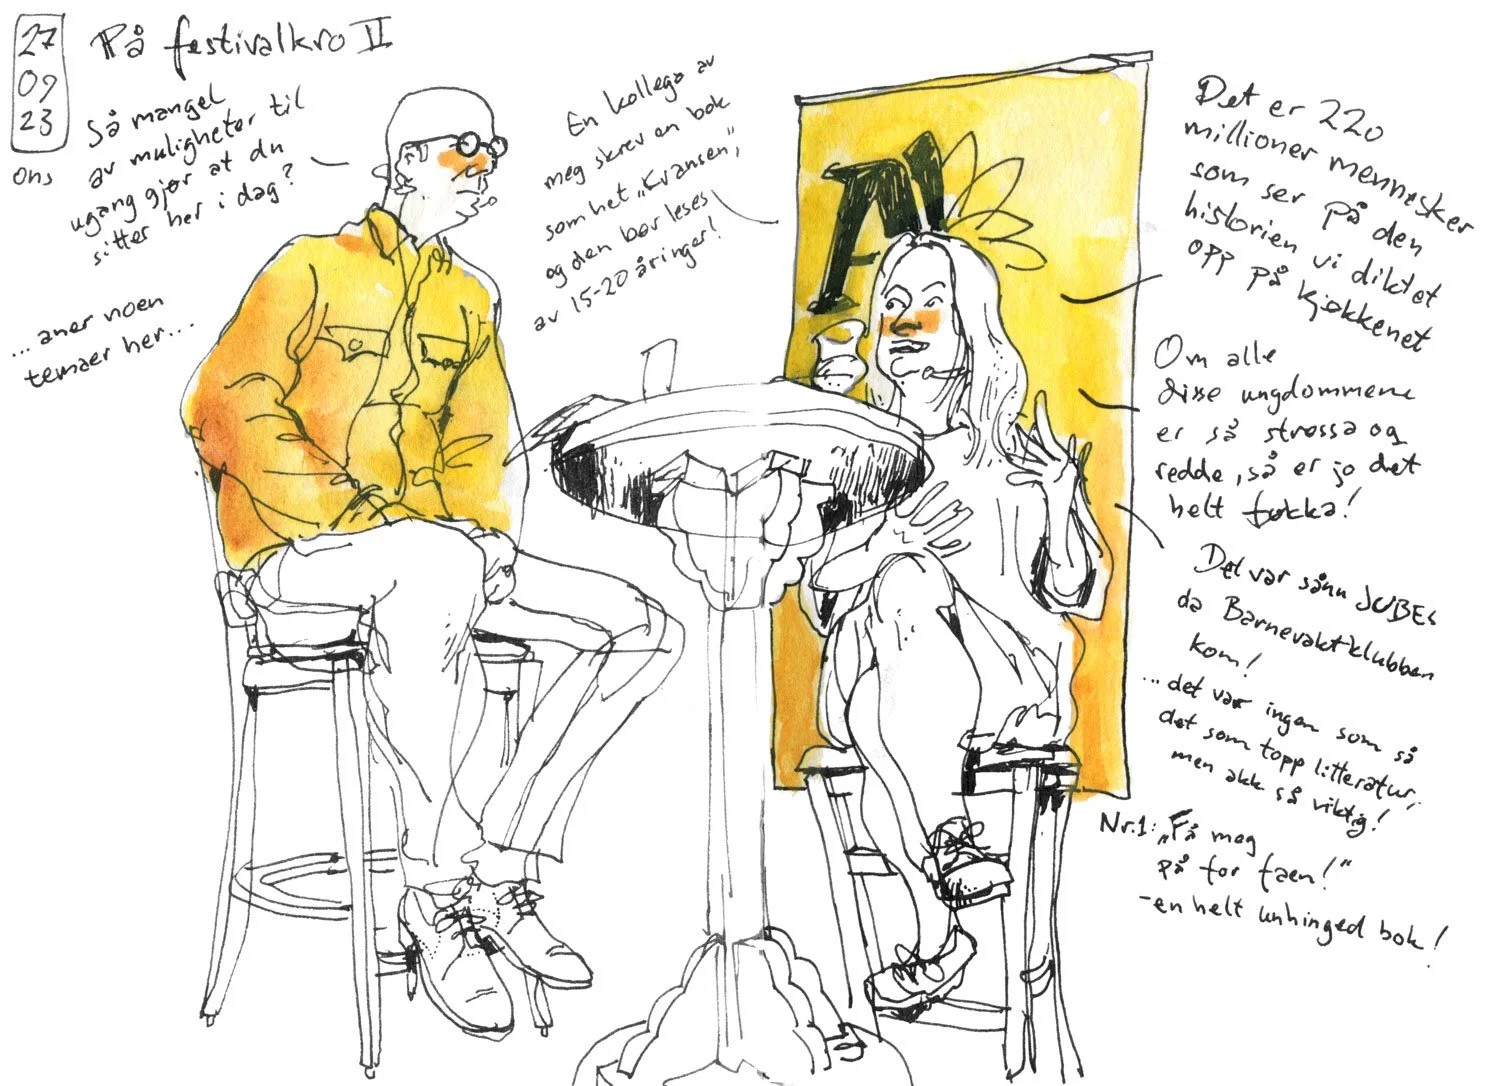 27
09
23
ons
På festivalkro II
Så mangel
av muligheter til
ugang gjør at du
sitter her i dag?
...aner noen
temaer her...
En kollega av
meg skrev en bok
som het „Kransen",
og den bør leses
av 15-20 åringer!
Det er 220
millioner mennesker
som ser på den
historien vi diktet
opp på kjøkkenet
Om alle
disse ungdommene
er så stressa og
redde, så er jo det
helt føkka!
Det var sånn JUBEL
da Barnevaktklubben
kom!
...det var ingen som så
det som topp litteratur,
men akk så viktig!
Nr.1: „Få meg
på for faen!"
-en helt unhinged bok!